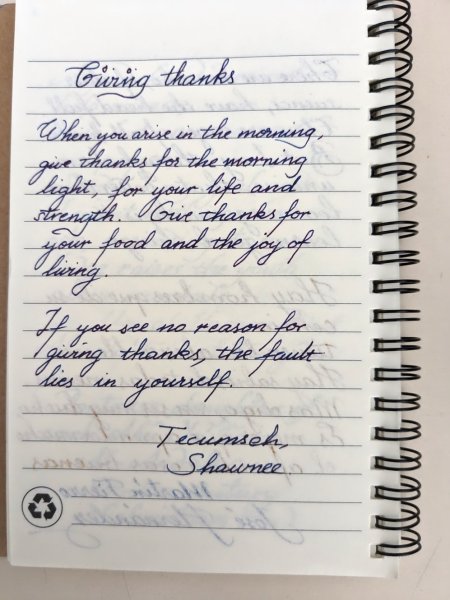 Giving thanks
When you arise in the morning,
give thanks for the morning
light, for your life and
strength. Give thanks for
your food and the joy of
living.
If you see no reason for
giving thanks, the fault
lies in yourself.
Tecumseh,
Shawnee